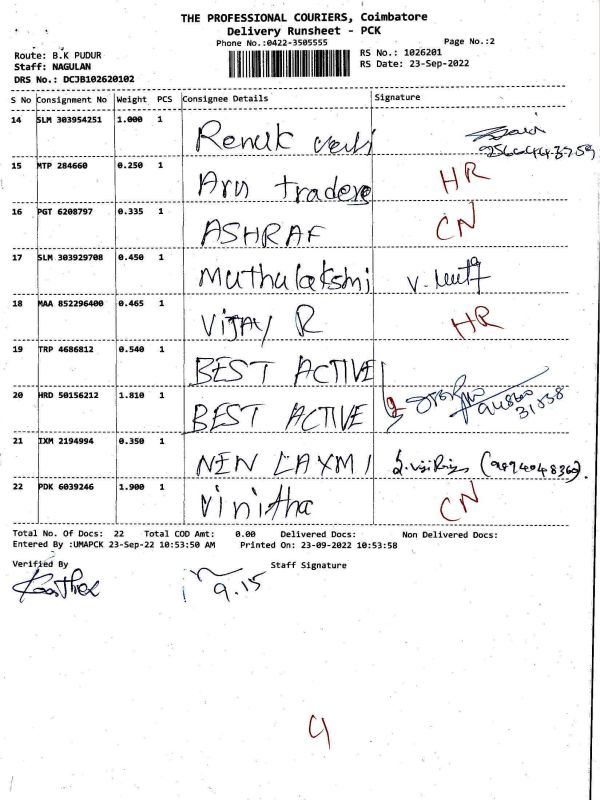 THE PROFESSIONAL COURIERS, Coimbatore
Delivery Runsheet - PCK
Phone No.:0422-3505555
Page No.:2
Route: B.K PUDUR
RS No.: 1026201
Staff: NAGULAN
RS Date: 23-Sep-2022
DRS No.: DCJB102620102
S No Consignment No Weight PCS Consignee Details Signature
14 SLM 303954251 1.000 1 Renuk
15 MTP 284660 0.250 1 Arn traders HR
16 PGT 6208797 0.335 1 ASHRAF CN
17 SLM 303929708 0.450 1 Muthulakshmi V.
18 MAA 852296400 0.465 1 Vijay R HR
19 TRP 4686812 0.540 1 BEST ACTIVE
20 HRD 50156212 1.810 1 BEST ACTIVE
21 IXM 2194994 0.350 1 NEN LAXMI
22 PDK 6039246 1.900 1 Vinitha CN
Total No. Of Docs: 22 Total COD Amt: 0.00 Delivered Docs: Non Delivered Docs:
Entered By :UMAPCK 23-Sep-22 10:53:50 AM Printed On: 23-09-2022 10:53:58
Verified By Staff Signature
9.15